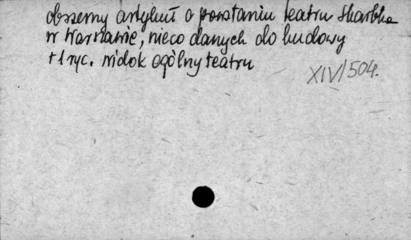 obszerny artykuł o powstaniu teatru Skarbka
w Warszawie, nieco danych do budowy
+ 1 ryc. widok ogólny teatru
XIV/504.